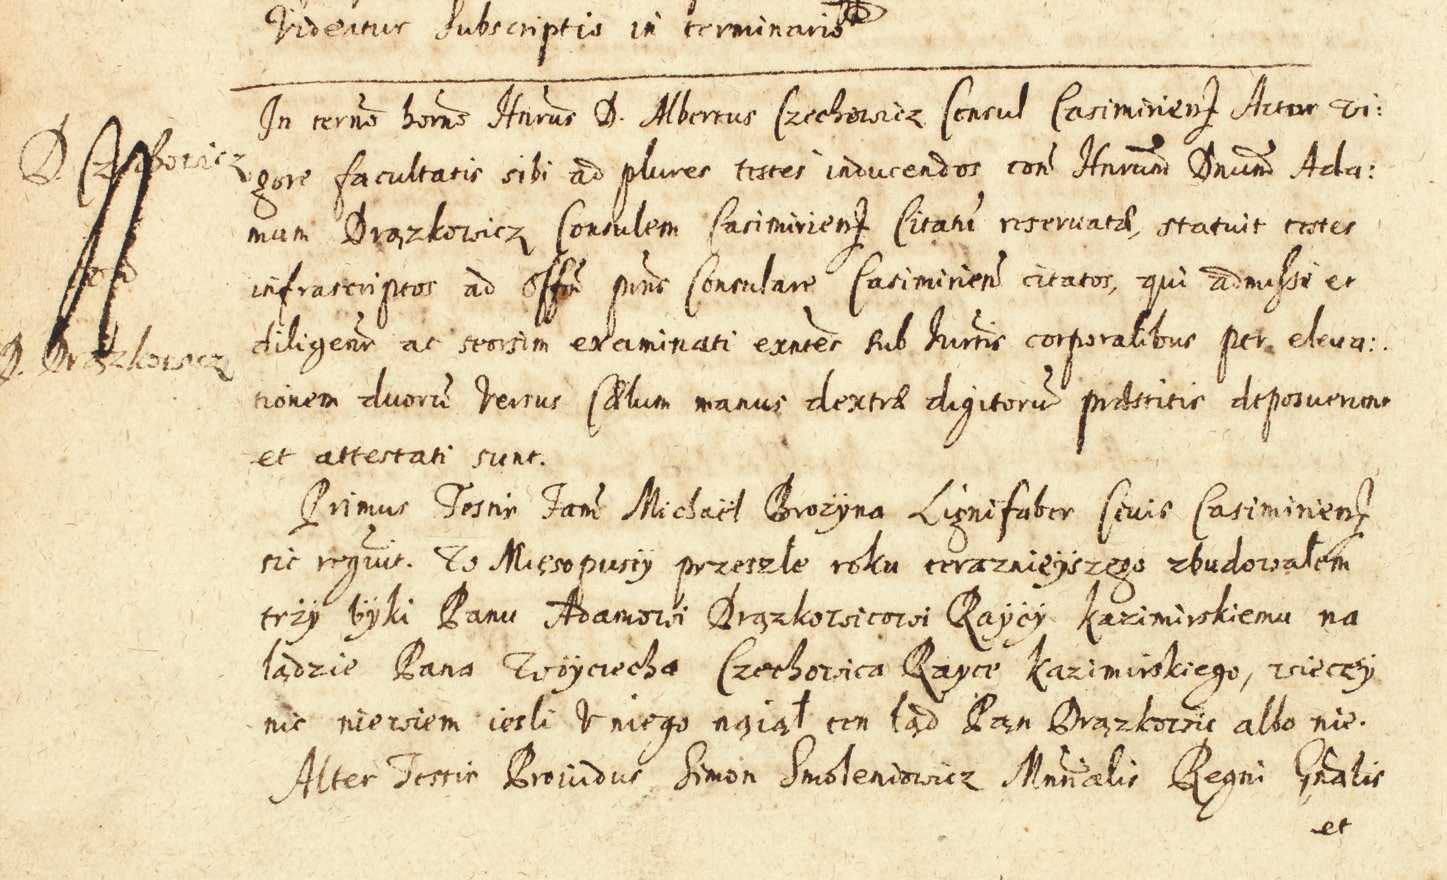 Videatur Subscriptio in terminario
In terno horno Hnrus D. Albertus Czechowicz Consul Casimirien Actor vi:
D. Czechowicz
gore facultatis sibi ad plures testes inducendos con Hnrum Dnum Ada:
mum Drązkowicz Consulem Casimirien Citatū reservatæ, statuit testes
infrascriptos ad Offm pnns Consulare Casimirien citatos, qui admissi et
diligenr ac seorsim examinati exntes sub Jurtis corporalibus per eleva:
D. Drązkowicz
tionem duorū versus Cælum manus dextræ digitorū præstitis deposuerunt
et attestati sunt.
Primus Testis Fam Michaël Brozyna Lignifaber Civis Casimirien
sic rgvit. W Mięsopusty przeszłe roku teraznieyszego zbudowałem
trzy byki Panu Adamowi Drązkowicowi Raycy kazimirskiemu na
lądzie Pana Woyciecha Czechowica Rayce kazimirskiego, wieczy
nic niewiem iesli V niego naiął ten ląd Pan Drązkowic albo nie.
Alter Testis Providus Simon Smoleniowicz Mnrialis Regni Gnalis
et